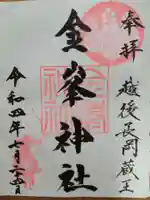 奉拝
越後長岡蔵王
金峯神社
令和四年七月二十四日